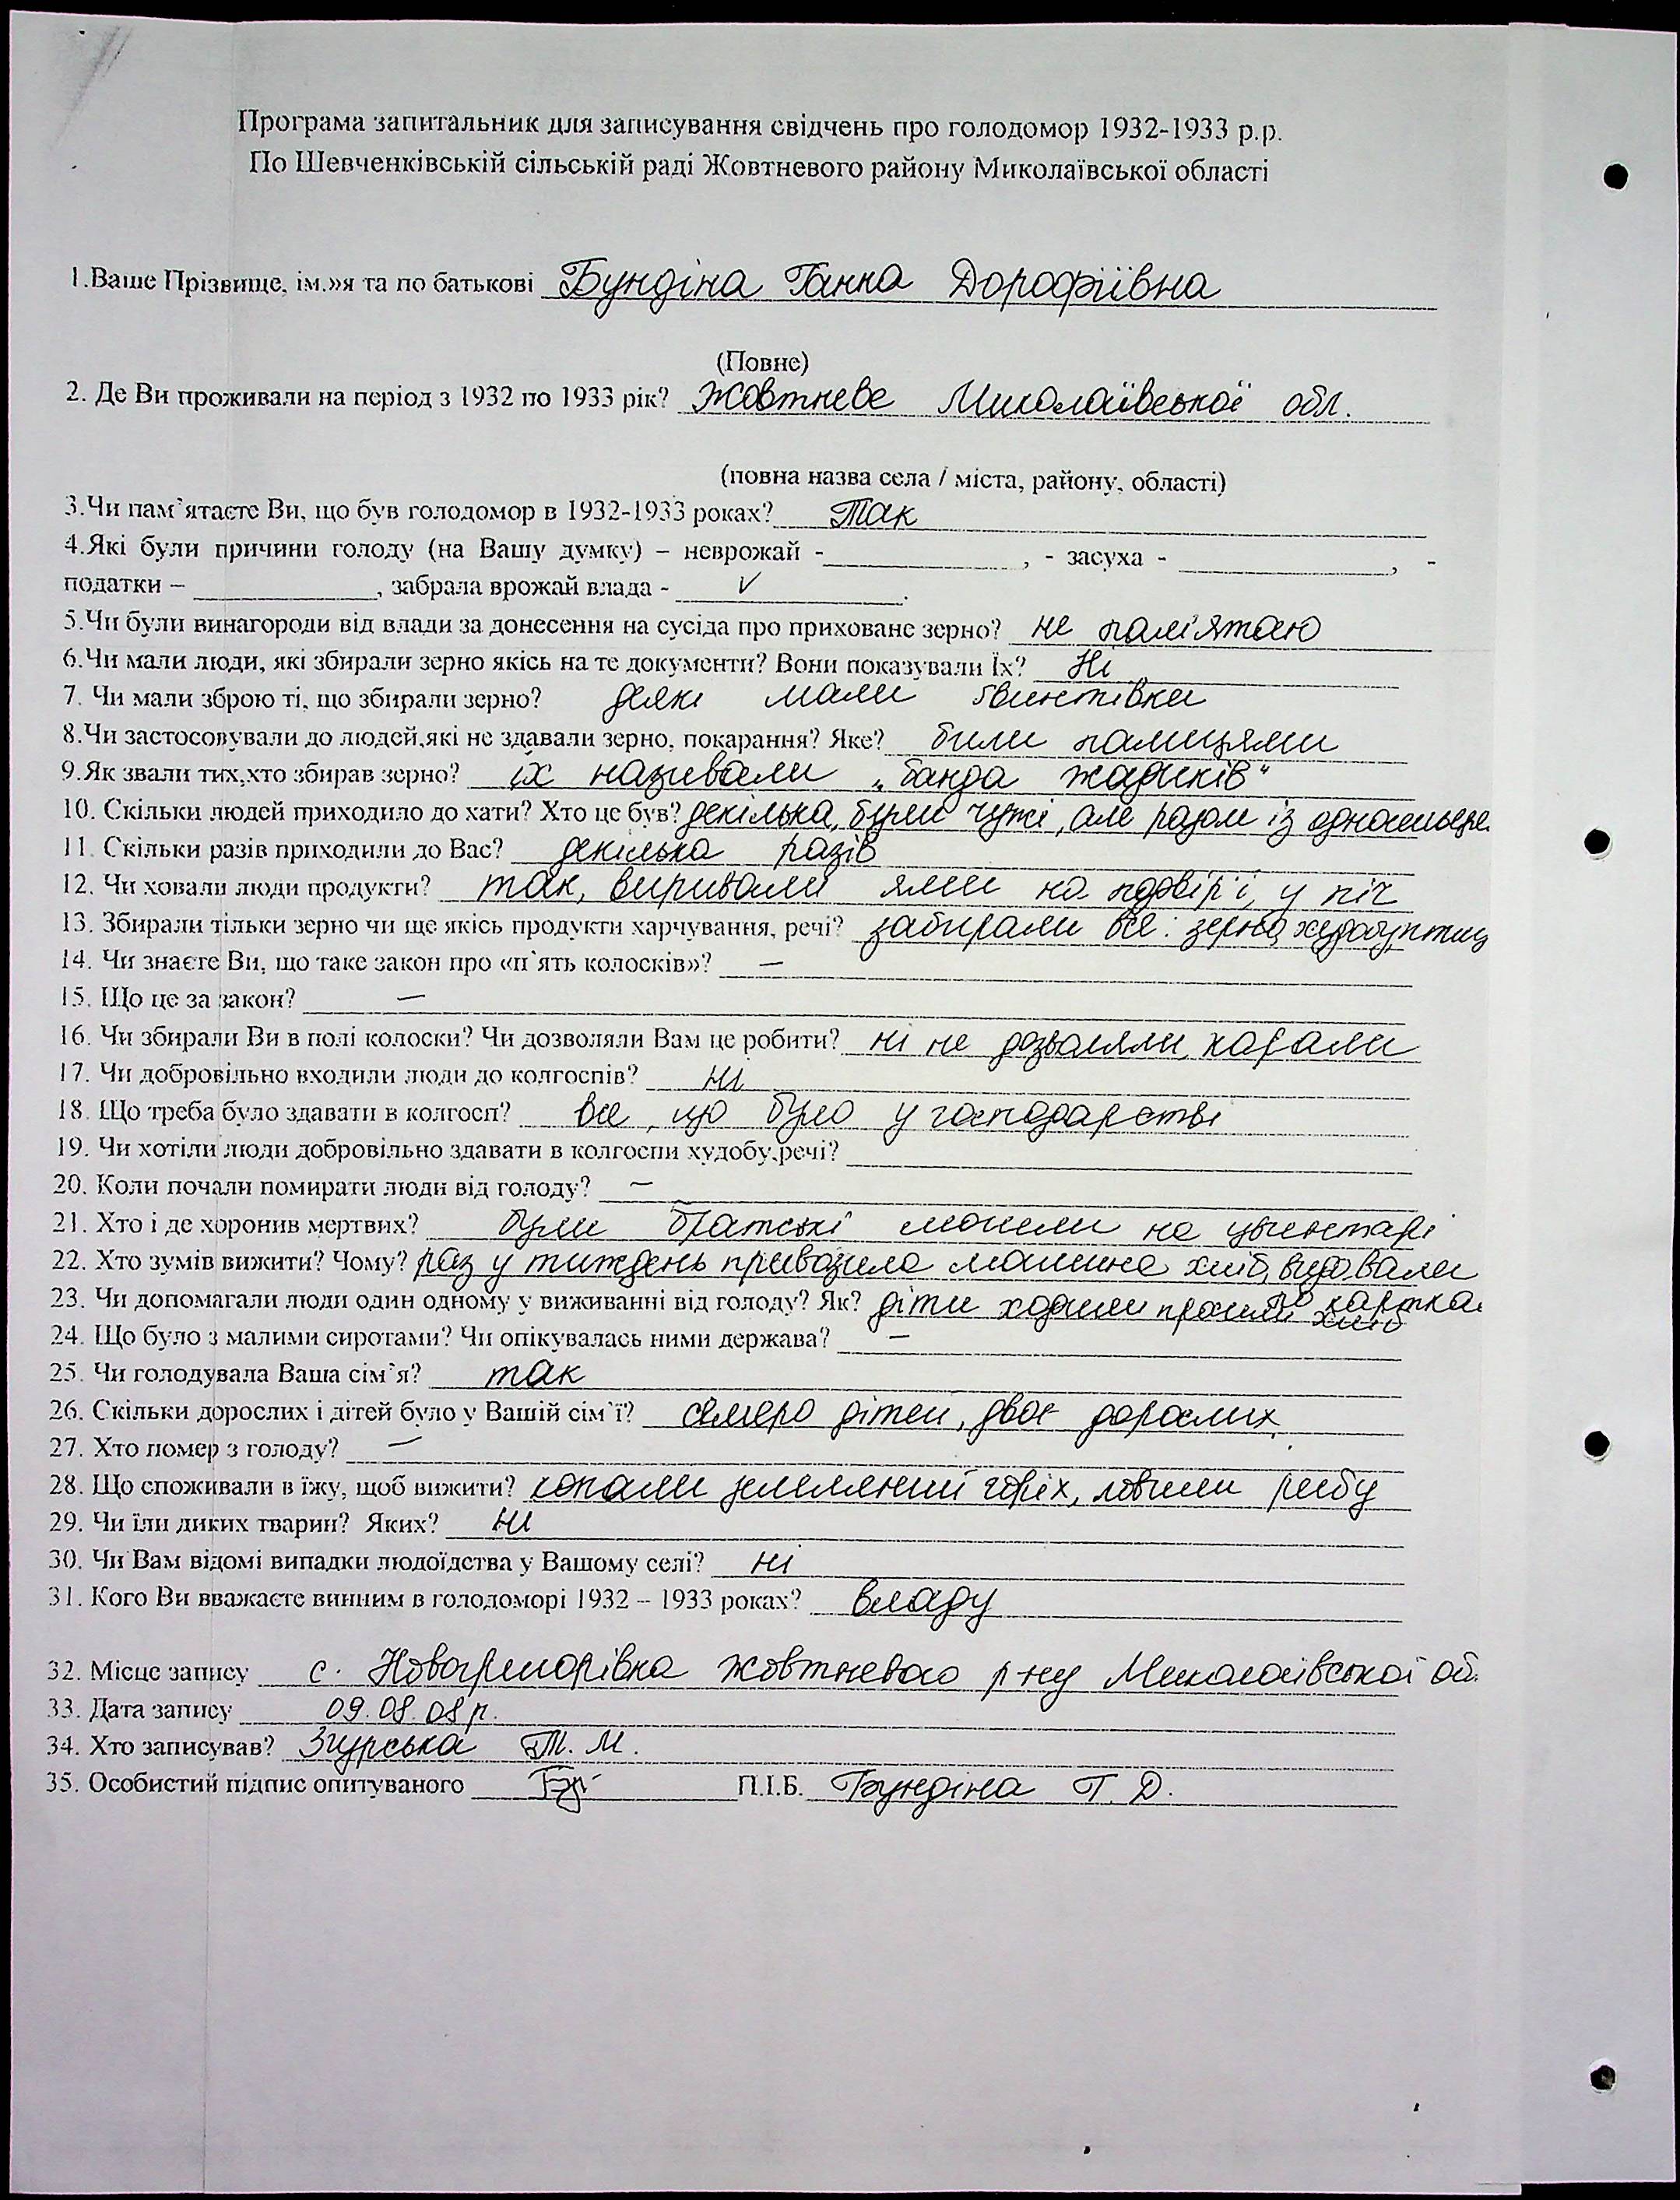 Програма запитальник для записування свідчень про голодомор 1932-1933 р.р.
По Шевченківській сільській раді Жовтневого району Миколаївської області
1.Ваше Прізвище, ім.»я та по батькові Бундіна Ганна Дорофіївна
(Повне)
2. Де Ви проживали на період з 1932 по 1933 рік? Жовтневе Миколаївської обл.
(повна назва села / міста, району, області)
3.Чи пам`ятаєте Ви, що був голодомор в 1932-1933 роках? Так
4.Які були причини голоду (на Вашу думку) – неврожай - , - засуха - , -
податки – , забрала врожай влада - V .
5.Чи були винагороди від влади за донесення на сусіда про приховане зерно? не пам'ятаю
6.Чи мали люди, які збирали зерно якісь на те документи? Вони показували Їх? Ні
7. Чи мали зброю ті, що збирали зерно? деякі мали гвинтівки
8.Чи застосовували до людей,які не здавали зерно, покарання? Яке? били палицями
9.Як звали тих,хто збирав зерно? їх називали „банда жадиків"
10. Скільки людей приходило до хати? Хто це був? декілька, були чужі, але разом із односельця
11. Скільки разів приходили до Вас? декілька разів
12. Чи ховали люди продукти? так, виривали ями на подвір'ї, у піч
13. Збирали тільки зерно чи ще якісь продукти харчування, речі? забирали все: зерно, худобу, птиц
14. Чи знаєте Ви, що таке закон про «п`ять колосків»? –
15. Що це за закон? –
16. Чи збирали Ви в полі колоски? Чи дозволяли Вам це робити? ні не дозволяли, карали
17. Чи добровільно входили люди до колгоспів? ні
18. Що треба було здавати в колгосп? все, що було у господарстві
19. Чи хотіли люди добровільно здавати в колгоспи худобу,речі?
20. Коли почали помирати люди від голоду? –
21. Хто і де хоронив мертвих? були братські могили на цвинтарі
22. Хто зумів вижити? Чому? раз у тиждень привозила машина хліб, видавали
23. Чи допомагали люди один одному у виживанні від голоду? Як? діти ходили просили хліб по картка
24. Що було з малими сиротами? Чи опікувалась ними держава? –
25. Чи голодувала Ваша сім`я? так
26. Скільки дорослих і дітей було у Вашій сім`ї? семеро дітей, двоє дорослих.
27. Хто помер з голоду? –
28. Що споживали в їжу, щоб вижити? копали земляний горіх, ловили рибу
29. Чи їли диких тварин? Яких? ні
30. Чи Вам відомі випадки людоїдства у Вашому селі? ні
31. Кого Ви вважаєте винним в голодоморі 1932 – 1933 роках? владу
32. Місце запису с. Новогригорівка Жовтневого р-ну Миколаївської об.
33. Дата запису 09.08.08р.
34. Хто записував? Згурська Т. М.
35. Особистий підпис опитуваного П.І.Б. Бундіна Г. Д.